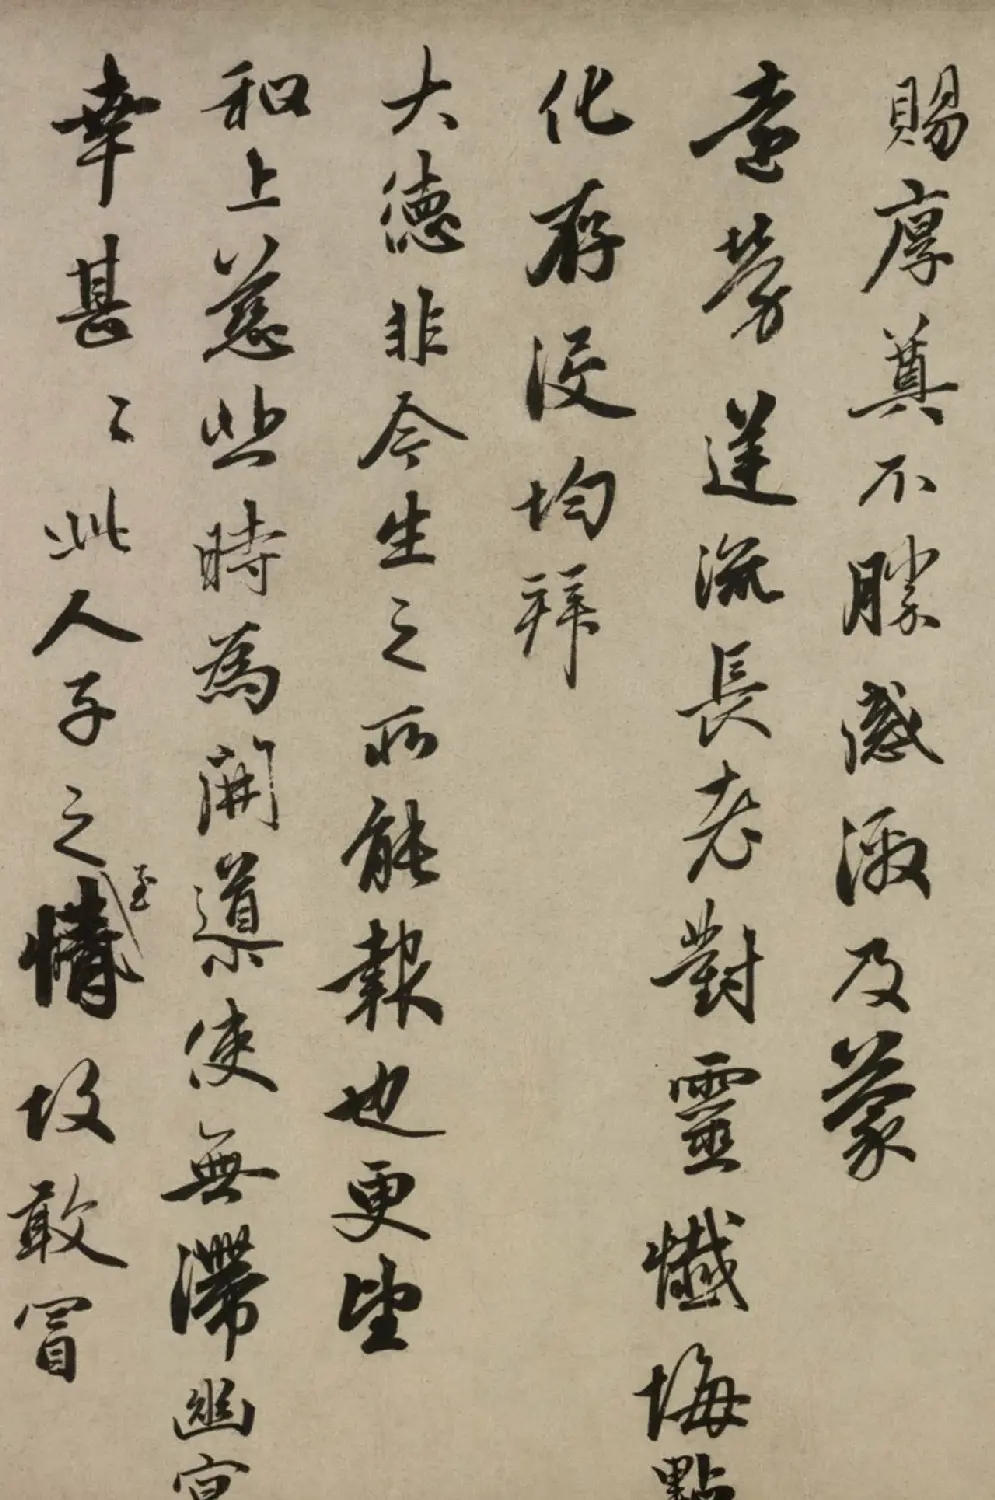 賜厚奠不勝感激及蒙
遠勞達流長老對靈懺悔點
化存沒均拜
大德非今生之所能報也更望
和上慈些時為開導使無滯幽冥
幸甚〻此人子之至情故敢冒